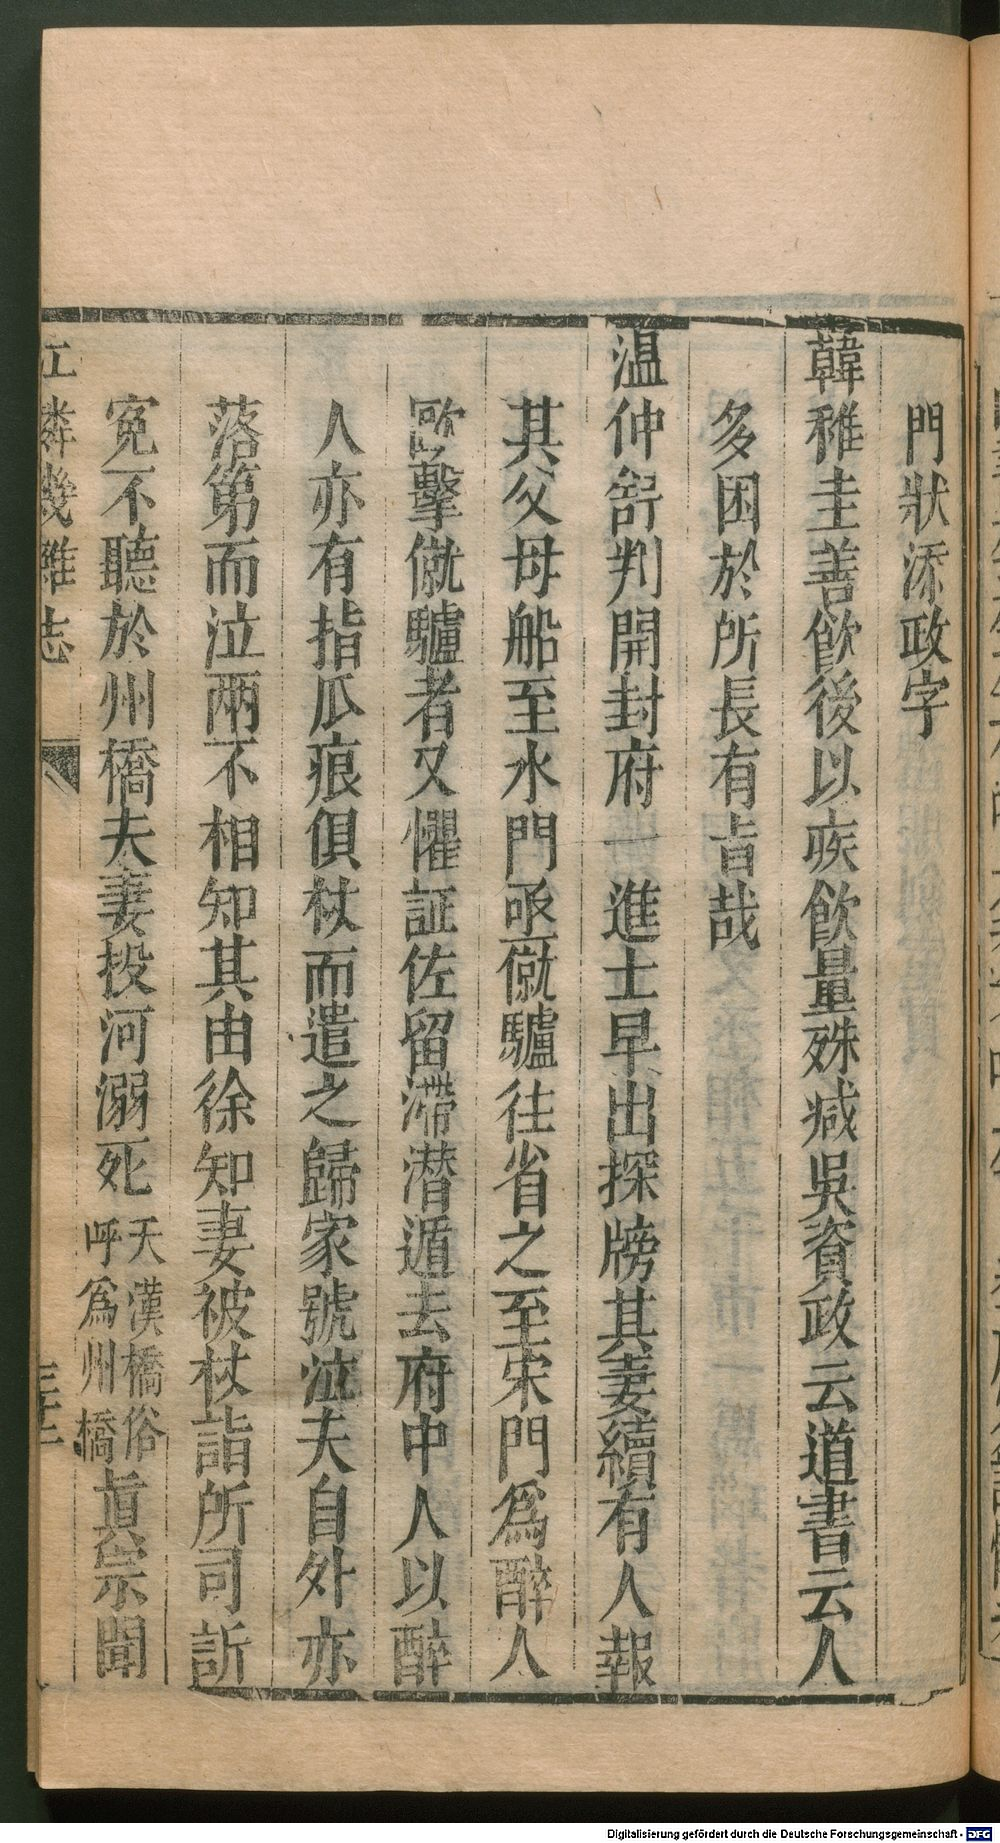 門狀添政字
韓稚圭善飮後以疾飮量殊减吳資政云道書云人
多困於所長有旨哉
温仲舒判開封府一進士早出探牓其妻續有人報
其父母船至水門亟僦驢往省之至宋門爲醉人
歐擊僦驢者又懼証佐留滯潜遁去府中人以醉
人亦有指瓜痕俱杖而遣之歸家號泣夫自外亦
落第而泣兩不相知其由徐知妻被杖詣所司訢
寃不聽於州橋夫妻投河溺死天漢橋俗呼爲州橋眞宗聞
江鄰幾雜志
三十二
Digitalisierung gefördert durch die Deutsche Forschungsgemeinschaft - DFG